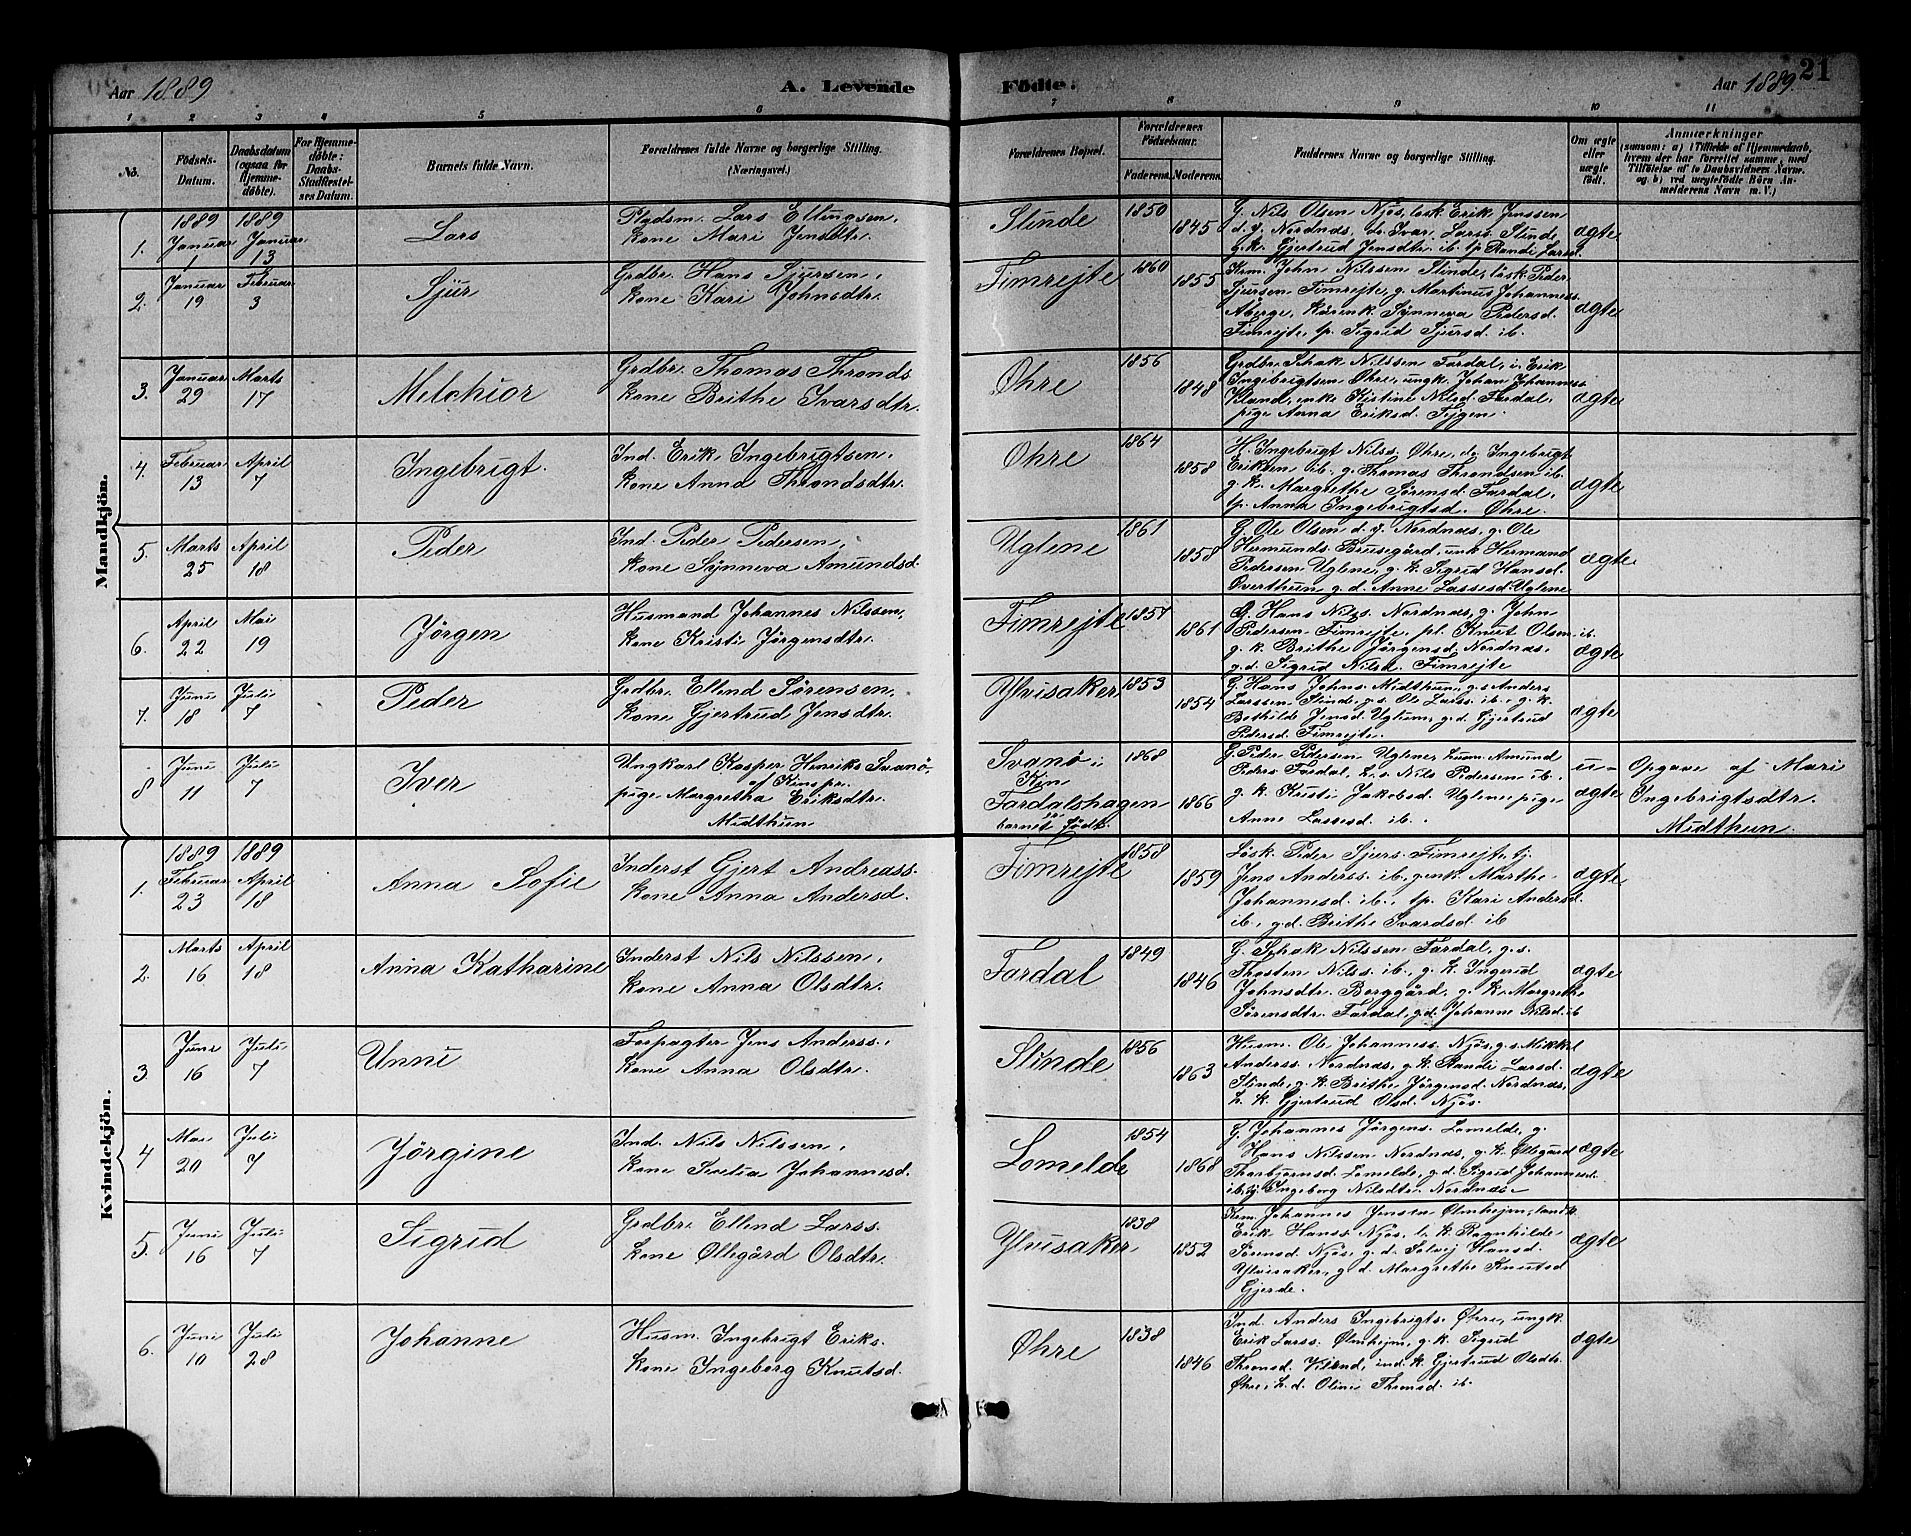 Aar 1889
A. Levende
Födte.
Aar 1889.
21
1 2 3 4 5 6 7 8 9 10 11
No.
Födsels-
Datum.
Daabsdatum
(ogsaa for
Hjemme-
döbte).
For Hjemme-
döbte:
Daabs-
Stadfæstel-
ses Datum.
Barnets fulde Navn.
Forældrenes fulde Navne og borgerlige Stilling.
(Næringsvei.)
Forældrenes Bopæl.
Forældrenes
Födselsaar.
Faderens. Moderens.
Faddernes Navne og borgerlige Stilling.
Om ægte
eller
uægte
födt.
Anmærkninger
(saasom: a) i Tilfælde af Hjemmedaab,
hvem der har forrettet samme, med
Tilföielse af to Daabsvidners Navne,
og b) ved uægtefödte Börn An-
melderens Navn m. V.)
Mandkjön.
1.
1889
Januar
1
1889
Januar
13
Lars
Pladsm. Lars Ellingsen,
kone Mari Jensdtr.
Slinde
1850
1845
G. Nils Olsen Njøs, løsk. Erik Jenssen
d. y. Nordnæs, do. Ivar Larss. Slinde,
g.k. Gjertrud Jensdtr. ib. tp. Randi Larsd.
ægte
2.
Januar
19
Februar
3
Sjur
Grdbr. Hans Sjursen,
kone Kari Johnsdtr.
Fimrejte
1860
1855
Kem. John Nilssen Slinde, løsk. Peder
Sjursen Fimrejte, g. Martinus Johanness.
Aberge, kårenk. Synneva Pedersd.
Fimrejte, tp. Sigrid Sjursd. ib.
ægte
3.
Januar
29
Marts
17
Melchior
Grdbr. Thomas Thronds.
kone Brithe Ivarsdtr.
Øhre
1856
1848
Grdbr. Schak Nilssen Fardal, i. Erik
Ingebrigtsen Øhre, ungk. Johan Johanness.
enke Kistine Nilsd. Fardal,
pige Anna Eriksd.
ægte
4.
Februar
13
April
7
Ingebrigt.
Ind. Erik Ingebrigtsen,
kone Anna Throndsdtr.
Øhre
1864
1858
H. Ingebrigt Nilss. Øhre, do. Ingebrigt
Eriksen ib., g. Thomas Throndsen ib.
g. k. Margrethe Sørensd. Fardal,
tp. Anna Ingebrigtsd. Øhre.
ægte
5.
Marts
25
April
18
Peder
Ind. Peder Pedersen,
kone Synneva Amundsd.
Uglene
1861
1858
G. Ole Olsen d. y. Nordnæs, g. Ole
Hermunds. Brusegård, unk. Hermand
Pedersen Uglene, g. k. Sigrid Hansd.
Overthun, g. d. Anne Lassesd. Uglene
ægte
6.
April
22
Mai
19
Jørgen
Husmand Johannes Nilssen,
kone Kristi Jørgensdtr.
Fimrejte
1857
1861
G. Hans Nils. Nordnæs, g. John
Pedersen Fimrejte, pl. Knut Olsen ib.
g. k. Brithe Jørgensd. Nordnæs,
g. d. Sigrid Nilsd. Fimrejte
ægte
7.
Juni
18
Juli
7
Peder
Grdbr. Ellend Sørensen,
kone Gjertrud Jensdtr.
Ylvisaker
1853
1854
G. Hans Johns. Midthun, g. s. Anders
Larssen Slinde, g. s. Ole Larss. ib., g. k.
Bothilde Jensd. Uglum, g. d. Gjertrud
Pedersd. Fimrejte.
ægte
8
Juni
11
Juli
7
Iver
Ungkarl Kasper Henriks. Svanø,
af Kin pr.
pige Margretha Eriksdtr.
Midthun
Svanø i
Kin
Fardalshagen
er
barnet født.
1868
1866
G. Peder Pedersen Uglene, husm. Amund
Peders. Fardal, h. s. Nils Pedersen ib.
g. k. Kristi Jakobsd. Uglene, pige
Anne Lassesd. ib.
u-
ægte
Opgave af Mari
Ingebrigtsdtr.
Midthun.
Kvindekjön.
1.
1889
Februar
23
1889
April
18
Anna Sofie
Inderst Gjert Andreass.
kone Anna Andersd.
Fimrejte
1858
1859
Løsk. Peder Sjurs. Fimrejte, tj.
Jens Anderss. ib., g. enk. Marthe
Johannesd. ib., tp. Kari Andersd.
ib., g. d. Brithe Ivarsd. ib
ægte
2.
Marts
16
April
18
Anna Katharine
Inderst Nils Nilssen,
kone Anna Olsdtr.
Fardal
1849
1846
G. Schak Nilssen Fardal, g. s.
Thosten Nilss. ib., g. k. Ingerid
Johnsdtr. Borggård, g. k. Margrethe
Sørensdtr. Fardal, g. d. Johanne Nilsd. ib
ægte
3.
Juni
16
Juli
7
Unni
Forpagter Jens Anderss.,
kone Anna Olsdtr.
Slinde
1856
1863
Husm. Ole Johanness. Njøs, g. s. Mikkel
Anderss. Nordnæs, g. k. Randi Larsd.
Slinde, g. k. Brithe Jørgensd. Nordnæs,
h. k. Gjertrud Olsd. Njøs.
ægte
4
Mai
20
Juli
7
Jørgine
Ind. Nils Nilssen,
kone Johannesd.
Lomelde
1854
1868
G. Johannes Jørgens. Lomelde, g.
Hans Nilssen Nordnæs, g. k. Ollegård
Thorbjørnsd. Lomelde, g. d. Sigrid Johannesd.
ib., tj. Ingeborg Nilsdtr. Nordnæs
ægte
5.
Juni
16
Juli
7
Sigrid
Grdbr. Ellend Larss.
kone Øllegård Olsdtr.
Ylvisaker
1838
1852
Kem. Johannes Jensen Ølmhejm,
Erik Hanss. Njøs, k. Ragnhilde
Sørensd. Njøs, g. d. Solvej Hansd.
Ylvisaker, g. d. Margrethe Knutsd
Gjerde.
ægte
6.
Juni
10
Juli
28
Johanne
Husm. Ingebrigt Eriks.
kone Ingeborg Knutsd.
Øhre
1838
1846
Ind. Anders Ingebrigts. Øhre, ungk.
Erik Larss. Ølmhejm, g. k. Sigrid
Thronsd. ind. k. Gjertrud Olsdtr.
Øhre, h. d. Oline Thronsd. ib.
ægte